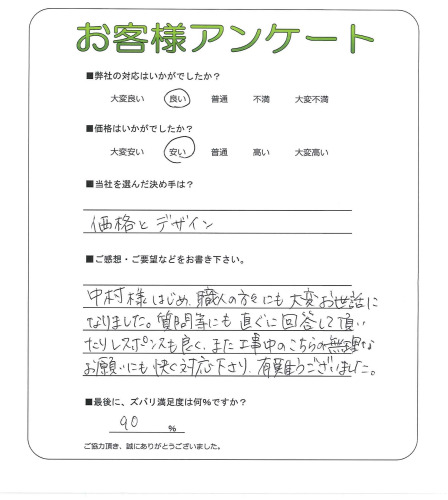 お客様アンケート
■弊社の対応はいかがでしたか？
大変良い 良い 普通 不満 大変不満
■価格はいかがでしたか？
大変安い 安い 普通 高い 大変高い
■当社を選んだ決め手は？
価格と デザイン
■ご感想・ご要望などをお書き下さい。
中村様はじめ、職人の方々にも大変お世話に
なりました。質問等にも直ぐに回答して頂い
たりレスポンスも良く、また工事中のこちらの無理な
お願いにも快く対応下さり、有難うございました。
■最後に、ズバリ満足度は何%ですか？
90 %
ご協力頂き、誠にありがとうございました。